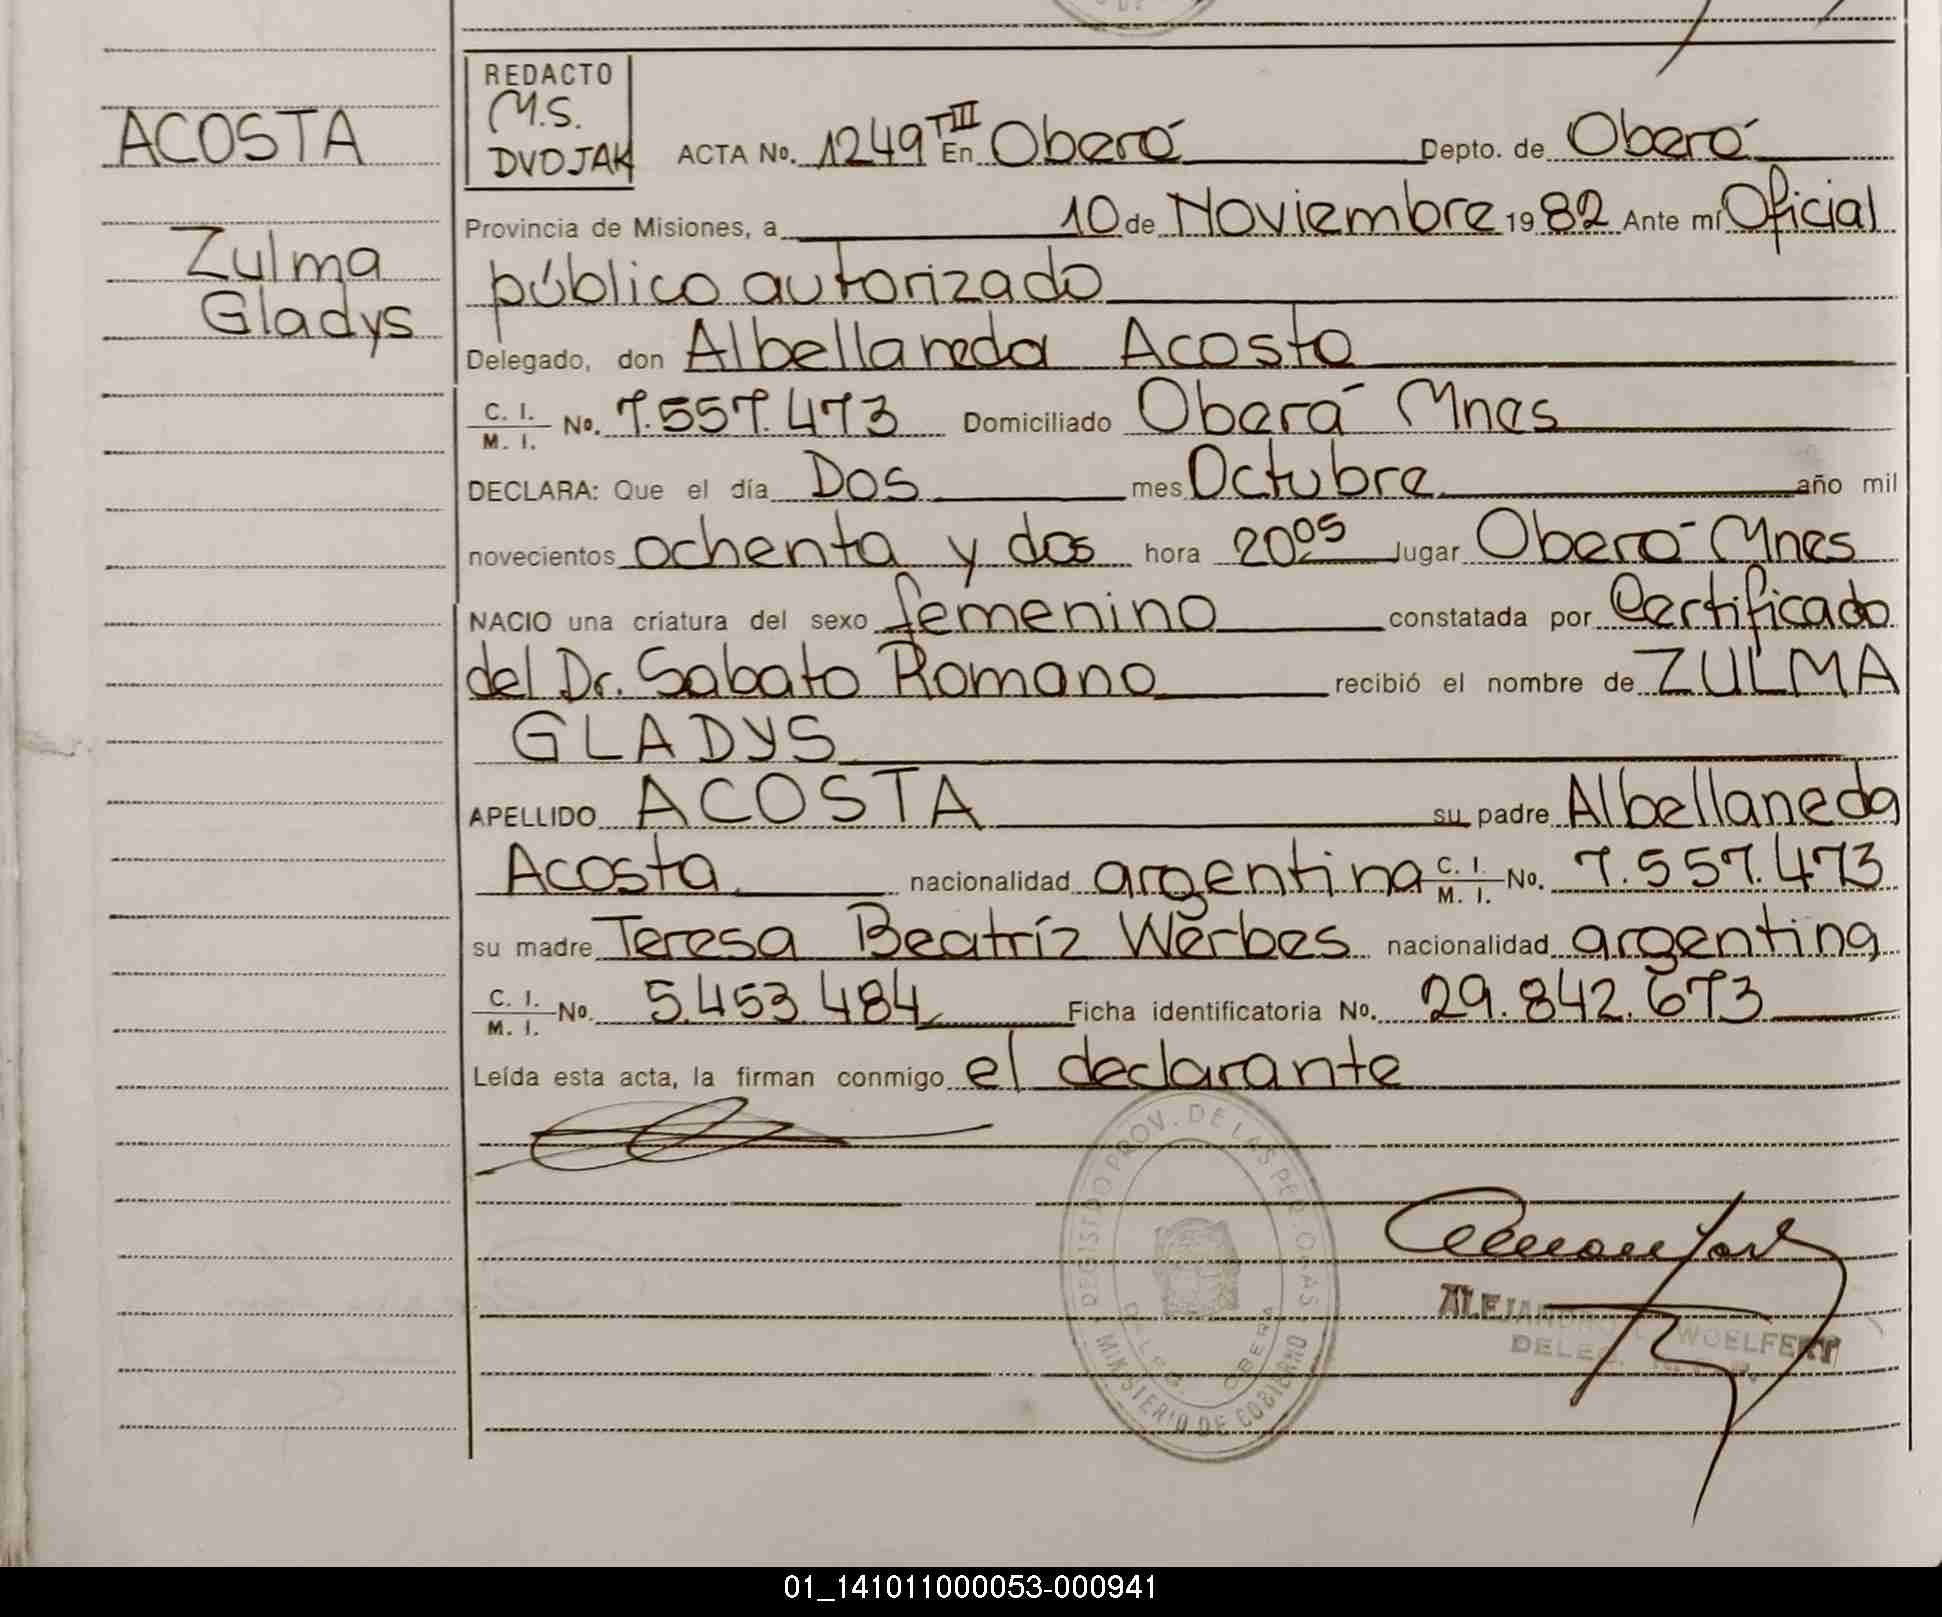 ACOSTA
Zulma
Gladys
REDACTO
M.S.
DVOJAK
ACTA No. 1249 TIII En Oberá Depto. de Oberá
Provincia de Misiones, a 10 de Noviembre 1982 Ante mí Oficial
público autorizado
Delegado, don Albellaneda Acosta
C. I. M. I. No. 7.557.473 Domiciliado Oberá Mnes
DECLARA: Que el día Dos mes Octubre año mil
novecientos ochenta y dos hora 20 05 lugar Oberá Mnes
NACIO una criatura del sexo femenino constatada por Certificado
del Dr. Sabato Romano recibió el nombre de ZULMA
GLADYS
APELLIDO ACOSTA su padre Albellaneda
Acosta nacionalidad argentina C. I. M. I. No. 7.557.473
su madre Teresa Beatríz Werbes nacionalidad argentina
C. I. M. I. No. 5.453.484 Ficha identificatoria No. 29.842.673
Leída esta acta, la firman conmigo el declarante
REGISTRO PROV. DE LAS PERSONAS
DELEG. OBERA
MINISTERIO DE GOBIERNO
WOELFERT
01_141011000053-000941